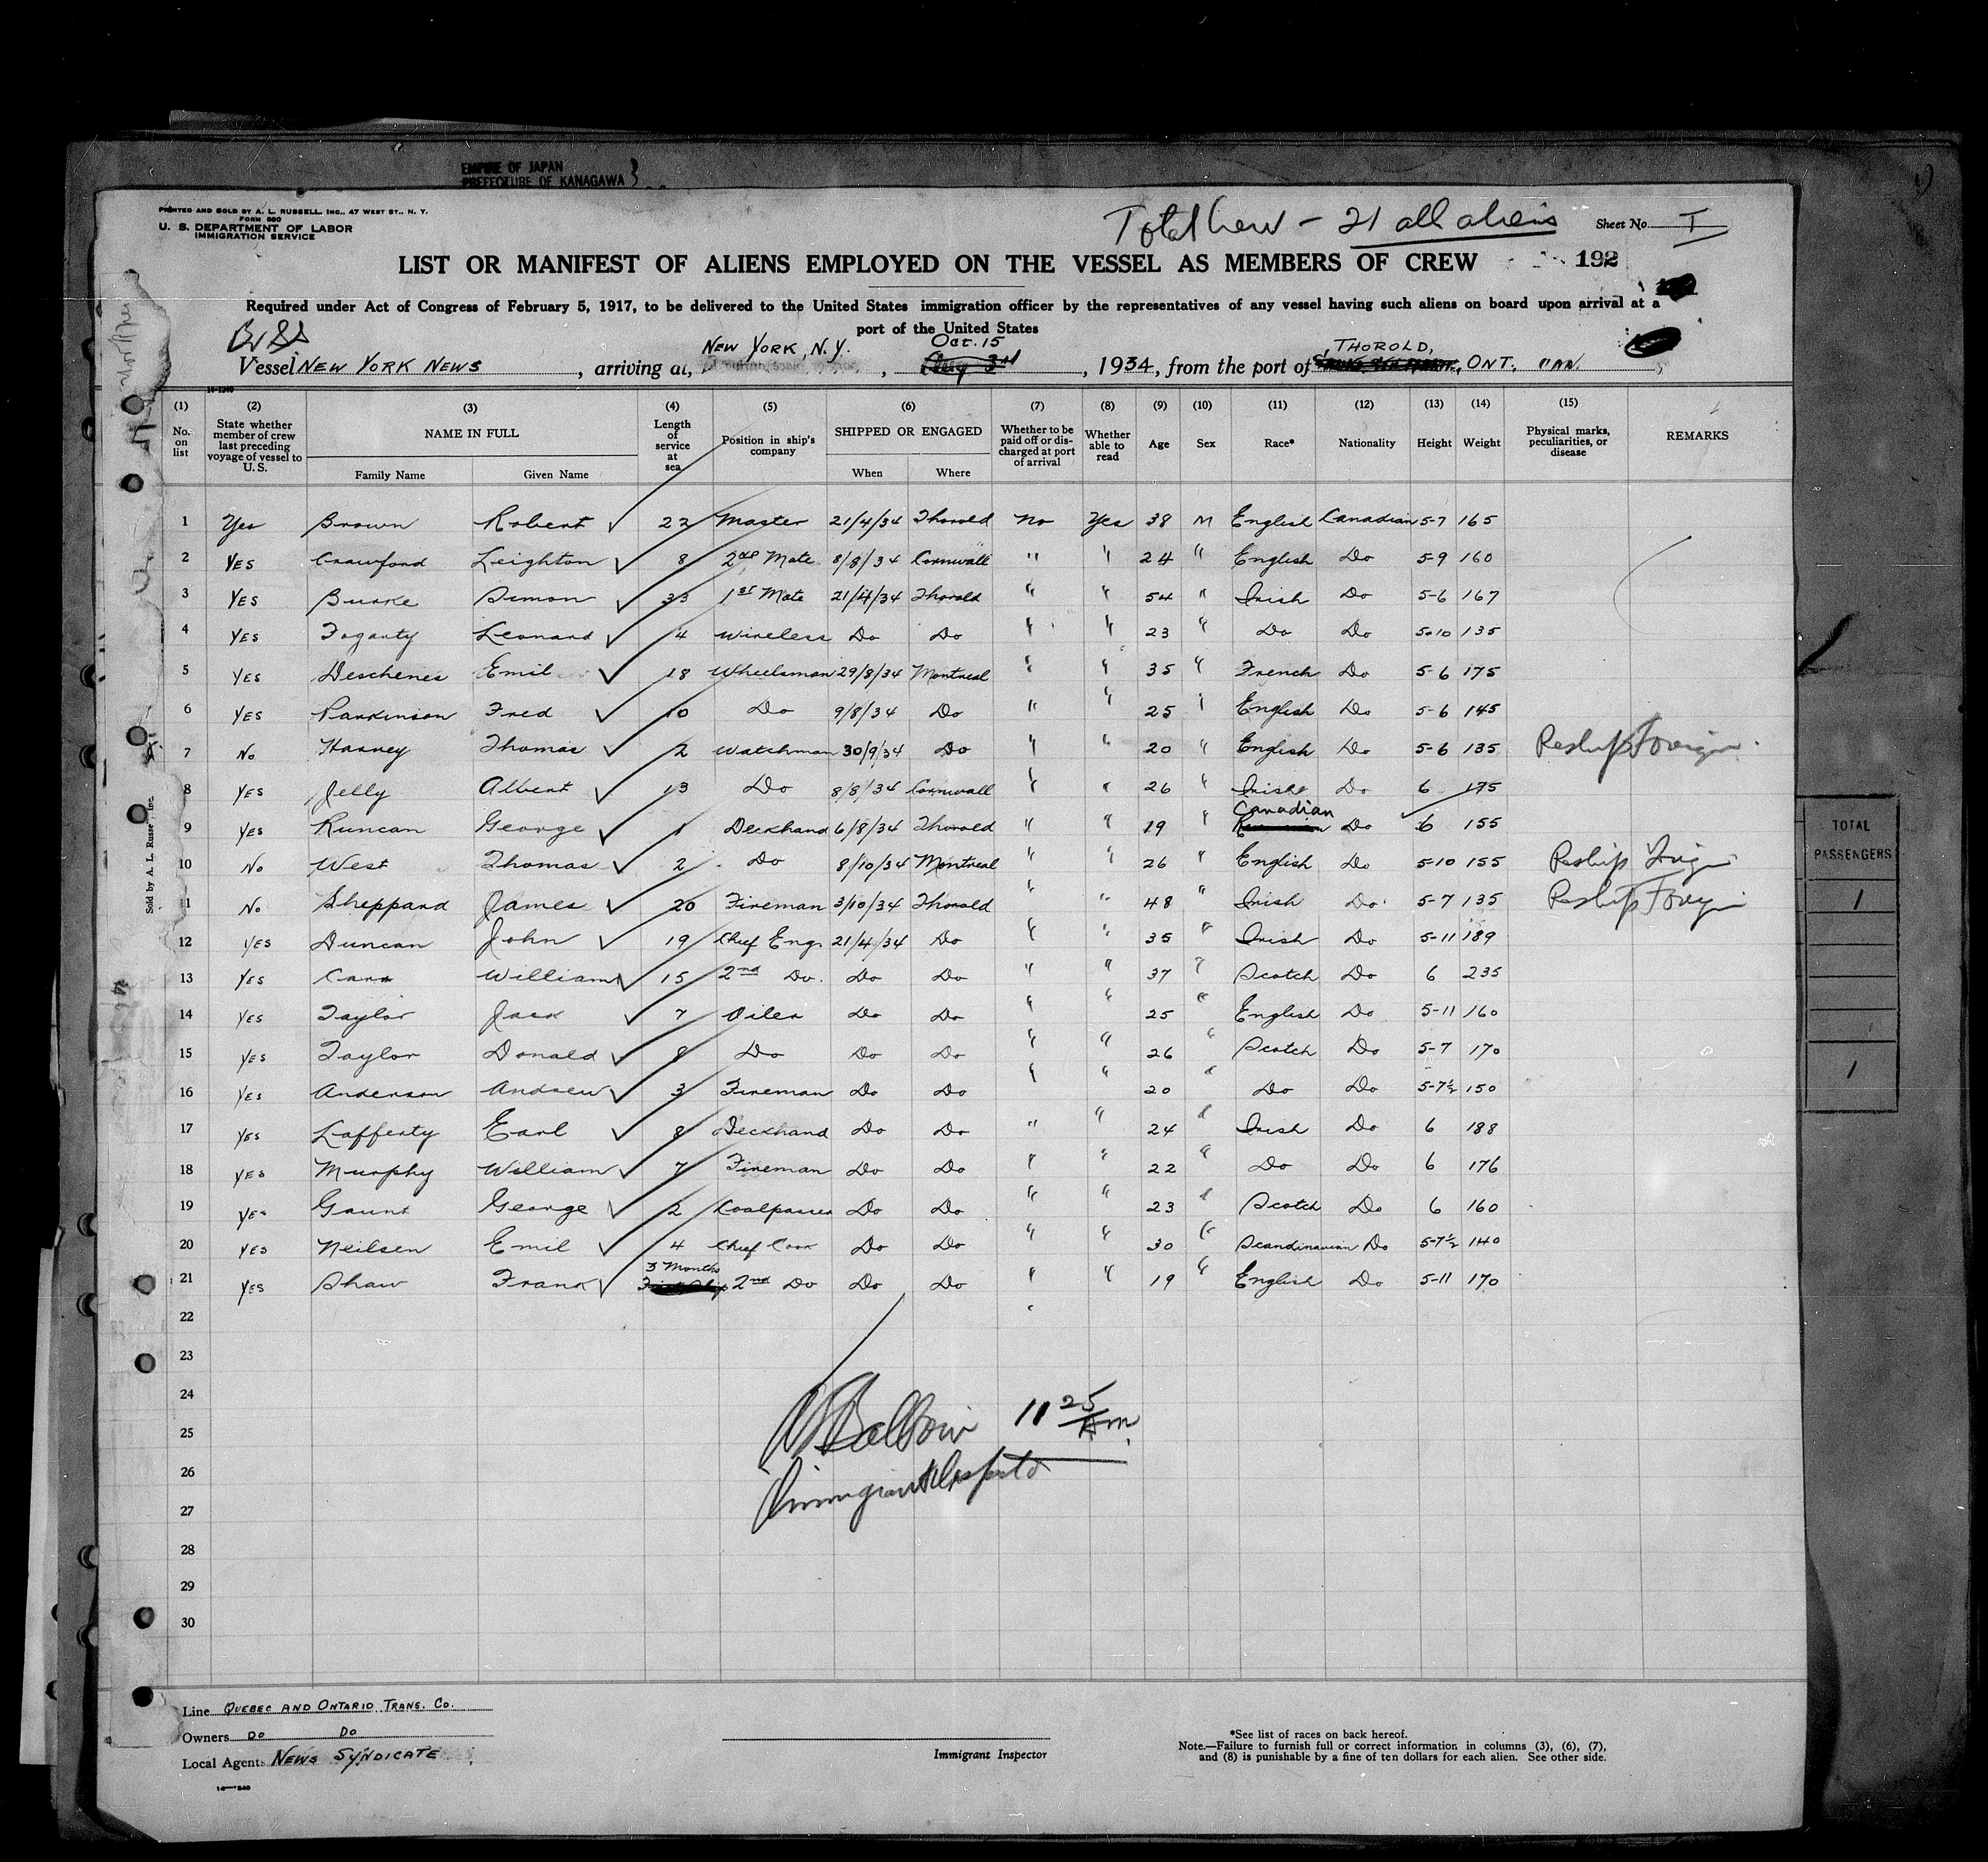 EMPIRE OF JAPAN
PREFECTURE OF KANAGAWA
PRINTED AND SOLD BY A. L. RUSSELL, INC., 47 WEST ST., N. Y.
FORM 680
U. S. DEPARTMENT OF LABOR
IMMIGRATION SERVICE
Total Crew - 21 all aliens
Sheet No. I
LIST OR MANIFEST OF ALIENS EMPLOYED ON THE VESSEL AS MEMBERS OF CREW 192
Required under Act of Congress of February 5, 1917, to be delivered to the United States immigration officer by the representatives of any vessel having such aliens on board upon arrival at a
port of the United States
Br SS
Vessel NEW YORK NEWS, arriving at, NEW YORK, N.Y., Oct. 15 Aug 3rd, 1934, from the port of THOROLD, ONT., CAN.
(1) (2) (3) (4) (5) (6) (7) (8) (9) (10) (11) (12) (13) (14) (15)
No. on list State whether member of crew last preceding voyage of vessel to U. S. NAME IN FULL Length of service at sea Position in ship's company SHIPPED OR ENGAGED Whether to be paid off or discharged at port of arrival Whether able to read Age Sex Race* Nationality Height Weight Physical marks, peculiarities, or disease REMARKS
Family Name Given Name When Where
1 Yes Brown Robert 22 Master 21/4/34 Thorold No Yes 38 M English Canadian 5-7 165
2 YES Crawford Leighton 8 2nd Mate 8/8/34 Cornwall " " 24 " English Do 5-9 160
3 YES Burke Simon 33 1st Mate 21/4/34 Thorold " " 54 " Irish Do 5-6 167
4 YES Fogarty Leonard 4 Wireless Do Do " " 23 " Do Do 5-10 135
5 YES Deschenes Emil 18 Wheelsman 29/8/34 Montreal " " 35 " French Do 5-6 175
6 YES Parkinson Fred 10 Do 9/8/34 Do " " 25 " English Do 5-6 145
7 No Harvey Thomas 2 Watchman 30/9/34 Do " " 20 " English Do 5-6 135 Reship Foreign
8 YES Jelly Albert 13 Do 8/8/34 Cornwall " " 26 " Irish Do 6 175
9 YES Runcan George 1 Deckhand 6/8/34 Thorold " " 19 " Canadian Do 6 155
10 No West Thomas 2 Do 8/10/34 Montreal " " 26 " English Do 5-10 155 Reship Foreign
11 No Sheppard James 20 Fireman 3/10/34 Thorold " " 48 " Irish Do 5-7 135 Reship Foreign
12 YES Duncan John 19 Chief Engr 21/4/34 Do " " 35 " Irish Do 5-11 189
13 YES Carr William 15 2nd Do. Do Do " " 37 " Scotch Do 6 235
14 YES Taylor Jack 7 Oiler Do Do " " 25 " English Do 5-11 160
15 YES Taylor Donald 8 Do Do Do " " 26 " Scotch Do 5-7 170
16 YES Anderson Andrew 3 Fireman Do Do " " 20 " Do Do 5-7½ 150
17 YES Lafferty Earl 8 Deckhand Do Do " " 24 " Irish Do 6 188
18 YES Murphy William 7 Fireman Do Do " " 22 " Do Do 6 176
19 YES Gaunt George 2 Coalpasser Do Do " " 23 " Scotch Do 6 160
20 YES Neilsen Emil 4 Chief Cook Do Do " " 30 " Scandinavian Do 5-7½ 140
21 YES Shaw Frank 3 Months 2nd Do Do Do " " 19 " English Do 5-11 170
22 "
23
24
25
26
27
28
29
30
Baldwin 11 25 Am.
Immigrant Inspector
TOTAL
PASSENGERS
1
1
Sold by A. L. Russell, Inc.
Line QUEBEC AND ONTARIO TRANS. CO.
Owners DO DO
Local Agents NEWS SYNDICATE
Immigrant Inspector
*See list of races on back hereof.
Note.—Failure to furnish full or correct information in columns (3), (6), (7),
and (8) is punishable by a fine of ten dollars for each alien. See other side.